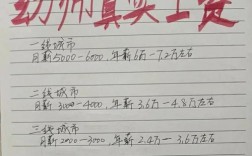 幼师真实工资
一线城市
月薪5000-6000,年薪6万-7.2万左右
二线城市
月薪3000-4000,年薪3.6万-4.8万左右
三线城市
月薪2000-3000,年薪2.4万-3.6万左右